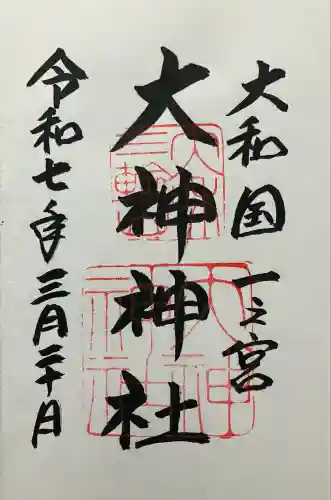 大和国一之宮
大神神社
令和七年三月三十日